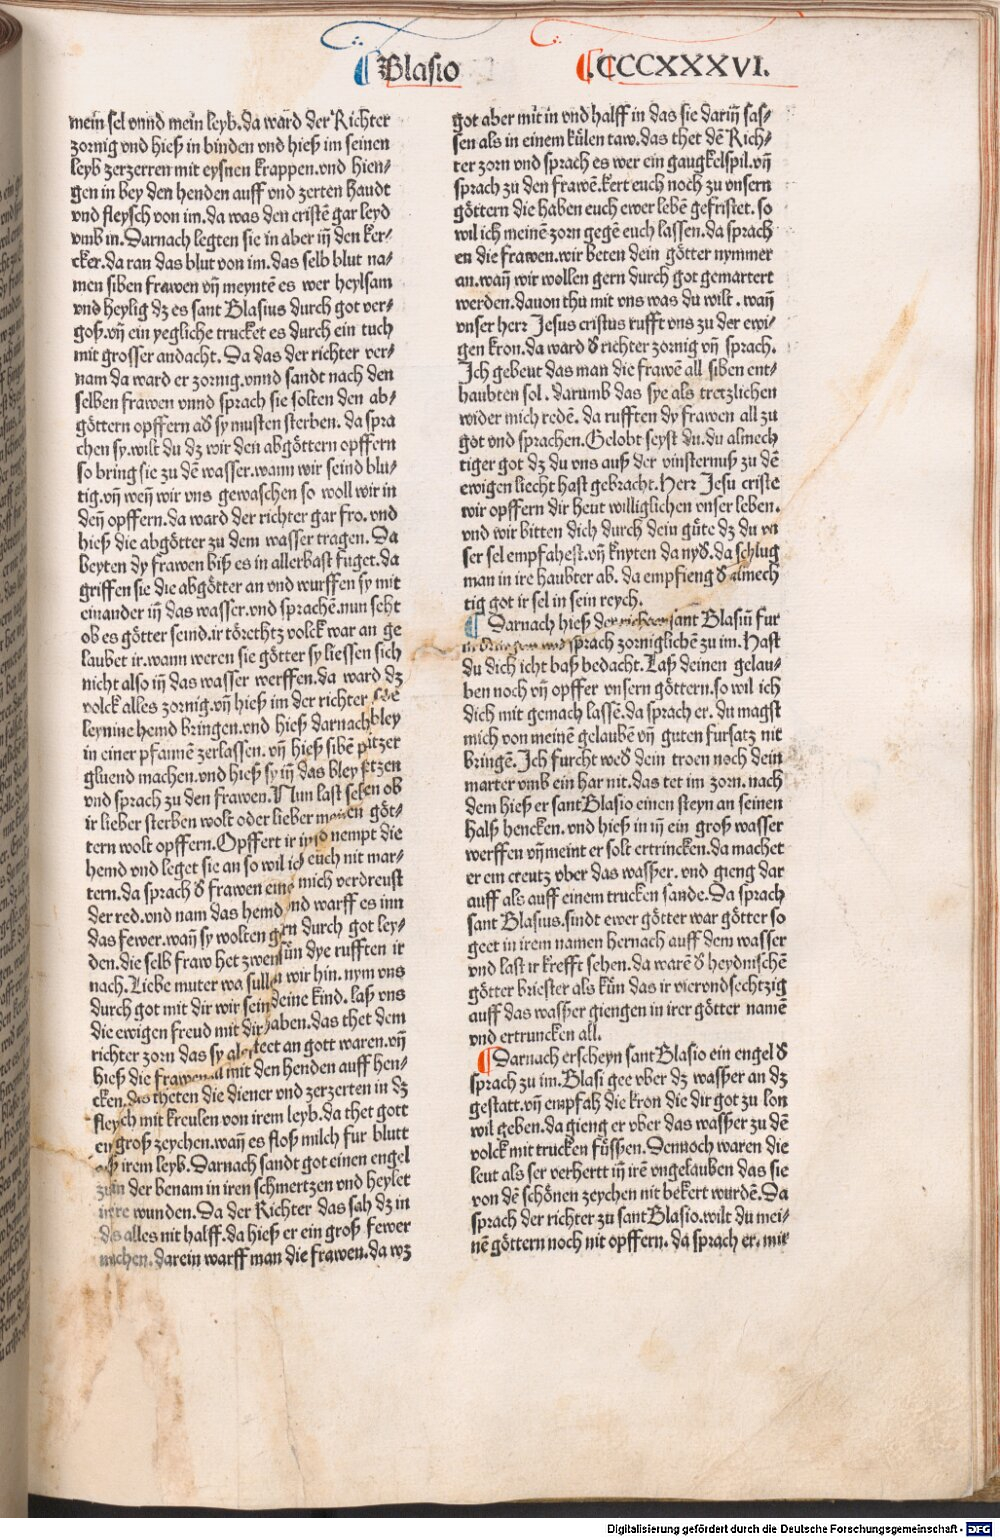 Blasio
.CCCXXXVI.
mein sel vnnd mein leyb.da ward der Richter
zornig vnd hieß in binden vnd hieß im seinen
leyb zerzerren mit eysnen krappen.vnd hien⸗
gen in bey den henden auff vnd zerten haudt
vnd fleysch von im.da was den cristē gar leyd
vmb in.Darnach legten sie in aber in̄ den ker⸗
cker.da ran das blut von im.das selb blut na⸗
men siben frawen vn̄ meyntē es wer heylsam
vnd heylig dz es sant Blasius durch got ver⸗
goß.vn̄ ein yegliche trucket es durch ein tuch
mit grosser andacht. Da das der richter ver⸗
nam da ward er zornig.vnnd sandt nach den
selben frawen vnnd sprach sie solten den ab⸗
göttern opffern ad̕ sy musten sterben. da spra
chen sy.wilt du dz wir den abgöttern opffern
so bring sie zu dē wasser.wann wir seind blu⸗
tig.vn̄ wen̄ wir vns gewaschen so woll wir in
den̄ opffern.da ward der richter gar fro. vnd
hieß die abgötter zu dem wasser tragen. Da
beyten dy frawen biß es in allerbast fuget.da
griffen sie die abgötter an vnd wurffen sy mit
einander in̄ das wasser.vnd sprachē.nun seht
ob es götter seind.ir törethtz volck war an ge
laubet ir.wann weren sie götter sy liessen sich
nicht also in̄ das wasser werffen.da ward dz
volck alles zornig.vn̄ hieß im der richter
leynine hemd bringen.vnd hieß darnach bley
in einer pfannē zerlassen. vn̄ hieß sibē pitzer
gluend machen.vnd hieß sy in̄ das bley setzen
vnd sprach zu den frawen.Nun last sehen ob
ir lieber sterben wolt oder lieber meinen göt⸗
tern wolt opffern.Opffert ir im so nempt die
hemd vnd leget sie an so wil ich euch nit mar⸗
tern.da sprach d̕ frawen eine mich verdreust
der red.vnd nam das hemd vnd warff es inn
das fewer.wan̄ sy wolten gern durch got ley⸗
den.die selb fraw het zwen sün dye rufften ir
nach.Liebe muter wa sullen wir hin. nym vns
durch got mit dir wir sein deine kind. laß vns
die ewigen freud mit dir haben.das thet dem
richter zorn das sy als stect an gott waren.vn̄
hieß die frawen all mit den henden auff hen⸗
cken.das theten die diener vnd zerzerten in dz
fleysch mit kreulen von irem leyb.da thet gott
ein groß zeychen.wan̄ es floß milch fur blutt
auß irem leyb. Darnach sandt got einen engel
zu in der benam in iren schmertzen vnd heylet
irre wunden. Da der Richter das sah dz in
dis alles nit halff.da hieß er ein groß fewer
machen. darein warff man die frawen.da wz
got aber mit in vnd halff in das sie darin̄ sas⸗
sen als in einem külen taw.das thet dē Rich⸗
ter zorn vnd sprach es wer ein gaugkelspil.vn̄
sprach zu den frawē.kert euch noch zu vnsern
göttern die haben euch ewer lebē gefristet. so
wil ich meinē zorn gegē euch lassen.da sprach
en die frawen.wir beten dein götter nymmer
an.wan̄ wir wollen gern durch got gemartert
werden.dauon thů mit vns was du wilt. wan̄
vnser herr Jesus cristus rufft vns zu der ewi⸗
gen kron.da ward d̕ richter zornig vn̄ sprach.
Ich gebeut das man die frawē all siben ent⸗
haubten sol. darumb das sye als tretzlichen
wider mich redē. da rufften dy frawen all zu
got vnd sprachen.Gelobt seyst du.du almech
tiger got dz du vns auß der vinsternuß zu dē
ewigen liecht hast gebracht.Herr Jesu criste
wir opffern dir heut williglichen vnser leben.
vnd wir bitten dich durch dein gůte dz du vn
ser sel empfahest.vn̄ knyten da nyd̕.da schlug
man in ire haubter ab. da empfieng d̕ almech
tig got ir sel in sein reych.
Darnach hieß der richter sant Blasiū fur
sprach zorniglichē zu im.Hast
du dich icht baß bedacht.Laß deinen gelau⸗
ben noch vn̄ opffer vnsern göttern.so wil ich
dich mit gemach lassē.da sprach er. du magst
mich von meinē gelaubē vn̄ guten fursatz nit
bringē.Ich furcht wed̕ dein troen noch dein
marter vmb ein har nit.das tet im zorn. nach
dem hieß er sant Blasio einen steyn an seinen
halß hencken. vnd hieß in in̄ ein groß wasser
werffen vn̄ meint er solt ertrincken.da machet
er ein creutz vber das waßer. vnd gieng dar
auff als auff einem trucken sande.Da sprach
sant Blasius.sindt ewer götter war götter so
geet in irem namen hernach auff dem wasser
vnd last ir krefft sehen.da warē d̕ heydnischē
götter briester als kün das ir viervndsechtzig
auff das waßer giengen in irer götter namē
vnd ertruncken all.
Darnach erscheyn sant Blasio ein engel d̕
sprach zu im.Blasi gee vber dz waßer an dz
gestatt.vn̄ empfah die kron die dir got zu lon
wil geben.da gieng er vber das waßer zu dē
volck mit trucken füßen.Dennoch waren die
leut als ser verhertt in̄ irē vngelauben das sie
von dē schönen zeychen nit bekert wurdē.Da
sprach der richter zu sant Blasio.wilt du mei⸗
nē göttern noch nit opffern. da sprach er. mir
Digitalisierung gefördert durch die Deutsche Forschungsgemeinschaft - DFG